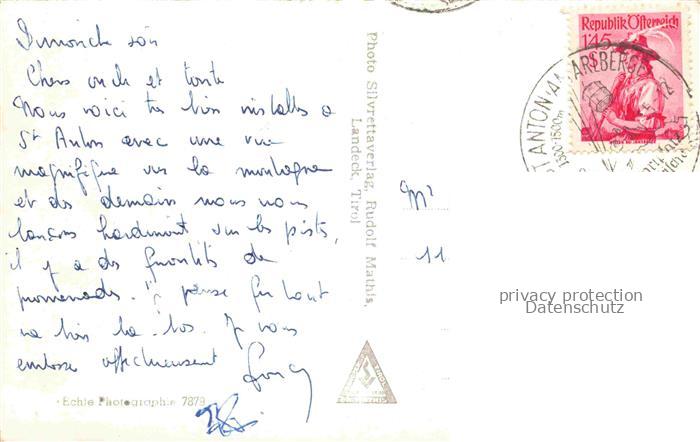 Dimanche soir
Chers oncle et tante
Nous voici très bien installés à
St Anton avec une vue
magnifique sur la montagne
et dès demain nous nous
lançons hardiment sur les pistes,
il y a des quantités de
promenades. Je pense que tout
va bien là-bas. Je vous
embrasse affectueusement
Echte Photographie 7879
Photo Silvrettaverlag, Rudolf Mathis,
Landeck, Tirol
Mr
11
Republik Österreich
1'45
S
ST ANTON AM ARLBERG
1300-1500m
privacy protection
Datenschutz